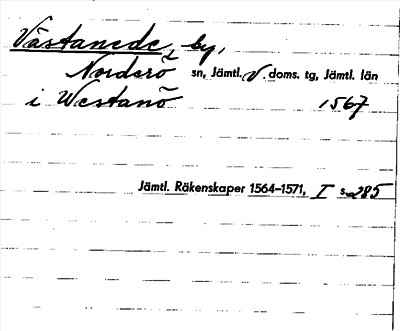 Västanede, by,
Norderö sn, Jämtl. V. doms. tg, Jämtl. län
i Westanö 1567
Jämtl. Räkenskaper 1564-1571, I s. 285